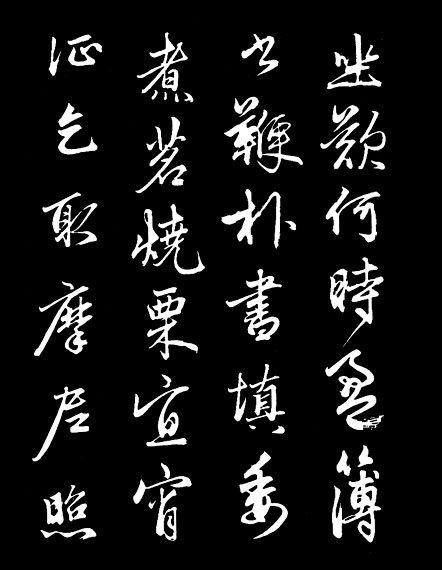 坐歎何時盈簿
書鞭朴晝填委
煮茗燒栗宜宵
征乞取摩尼照